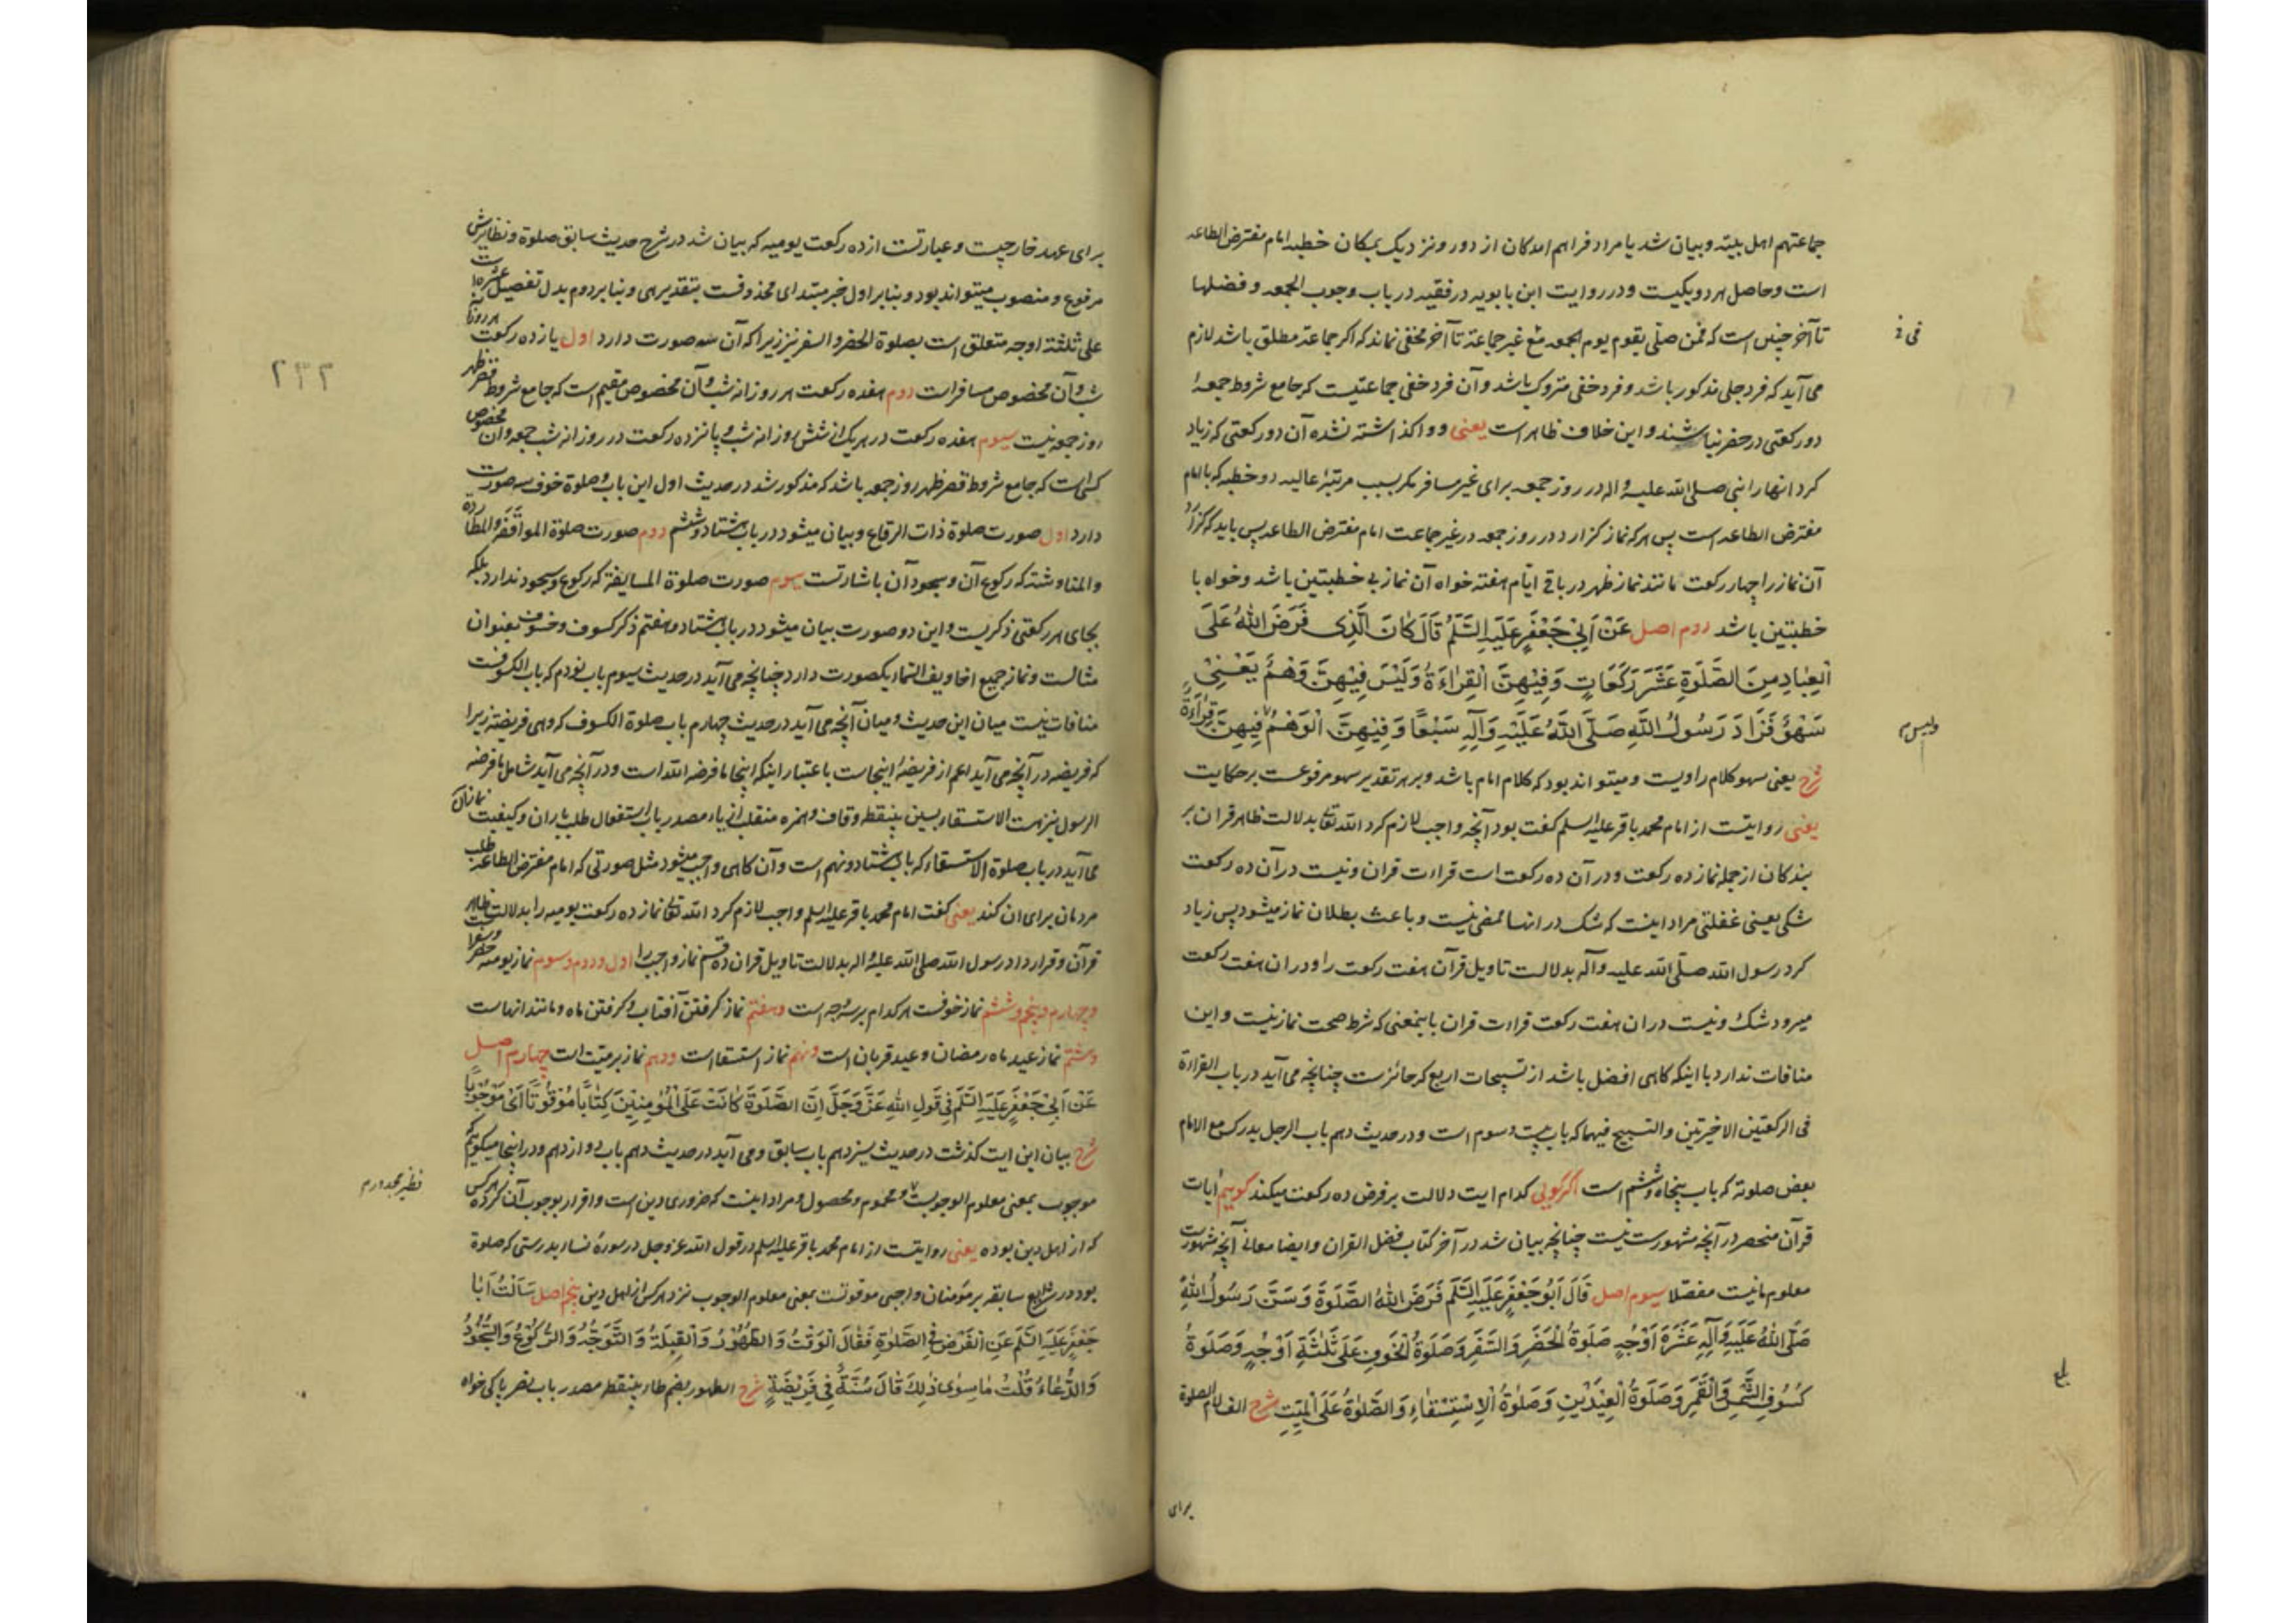 جماعتهم اهل بیته و بیان شد یا مراد فراهم امدکان از دور و نزدیک بمکان خطبه امام مفترض الطاعه
است و حاصل هر دو یکیست و در روایت ابن بابویه در فقیه در باب وجوب الجمعه و فضلها
تا آخر چنین است که فمن صلّی بقوم یوم الجمعه مع غیر جماعة تا آخر مخفی نماند که اگر جماعة مطلق باشد لازم
می آید که فرد جلی مذکور باشد و فرد خفی متروک باشد و آن فرد خفی جماعتیست که جامع شروط جمعهٔ
دو رکعتی در حضر نباشند و این خلاف ظاهر است یعنی و واکذاشته نشده آن دو رکعتی که زیاد
کرد انها را نبی صلی الله علیه واله در روز جمعه برای غیر مسافر مکر بسبب مرتبهٔ عالیه دو خطبه که با امام
مفترض الطاعه است پس هر که نماز کزارد در روز جمعه در غیر جماعت امام مفترض الطاعه پس باید که کزارد
آن نماز را چهار رکعت مانند نماز ظهر در باقی ایّام هفته خواه آن نماز بی خطبتین باشد و خواه با
خطبتین باشد دوم اصل عَنْ اَبِی جَعْفَرٍ عَلَیْهِ السَّلَمُ قَالَ کَانَ الَّذِی فَرَضَ اللهُ عَلَی
الْعِبَادِ مِنَ الصَّلَوةِ عَشْرَ رَکَعَاتٍ وَفِیْهِنَّ الْقِرَاءَةُ وَلَیْسَ فِیْهِنَّ وَهْمٌ یَعْنِیْ
سَهْوٌ فَزَادَ رَسُولُ اللَّهِ صَلَّی اللَّهُ عَلَیْهِ وَآلِهِ سَبْعًا وَفِیْهِنَّ الْوَهْمُ فِیْهِنَّ قِرَاءَةٌ
ولیس
شرح یعنی سهو کلام راویست و میتواند بود که کلام امام باشد و بر هر تقدیر سهو مرفوعست بر حکایت
یعنی روایتست از امام محمد باقر علیه السلم کفت بود آنچه واجب لازم کرد الله تعالی بدلالت ظاهر قران بر
بندکان از جمله نماز ده رکعت و در آن ده رکعت است قراءت قران و نیست در آن ده رکعت
شکی یعنی غفلتی مراد اینست که شک در انها ممضی نیست و باعث بطلان نماز میشود پس زیاد
کرد رسول الله صلّی الله علیه وآله بدلالت تاویل قرآن هفت رکعت را و در ان هفت رکعت
میرود شک و نیست در ان هفت رکعت قراءت قران باینمعنی که شرط صحت نماز نیست و این
منافات ندارد با اینکه کاهی افضل باشد از تسبیحات اربع که جائزست چنانچه می آید در باب القراءة
فی الرکعتین الاخیرتین والتسبیح فیهما که باب بیست و سوم است و در حدیث دهم باب الرجل یدرک مع الامام
بعض صلوته که باب پنجاه و ششم است اکر کویی کدام ایت دلالت بر فرض ده رکعت میکند کوییم ایات
قرآن منحصر در آنچه مشهورست نیست چنانچه بیان شد در آخر کتاب فضل القران و ایضا معانی آنچه مشهورست
معلوم ما نیست مفصّلا سیوم اصل قَالَ اَبُو جَعْفَرٍ عَلَیْهِ السَّلَمُ فَرَضَ اللهُ الصَّلَوةَ وَسَنَّ رَسُولُ اللهِ
صَلَّی اللهُ عَلَیْهِ وَآلِهِ عَشَرَةَ اَوْجُهٍ صَلَوةُ الْحَضَرِ وَالسَّفَرِ وَصَلَوةُ الْخَوْفِ عَلَی ثَلٰثَةِ اَوْجُهٍ وَصَلَوةُ
کُسُوفِ الشَّمْسِ وَالْقَمَرِ وَصَلَوةُ الْعِیْدَیْنِ وَصَلَوةُ الْاِسْتِسْقَاءِ وَالصَّلٰوةُ عَلَی الْمَیِّتِ شرح الف لام الصلوة
برای
۲۳۲
برای عهد خارجیست و عبارتست از ده رکعت یومیه که بیان شد در شرح حدیث سابق صلوة و نظایرش
مرفوع و منصوب میتواند بود و بنابر اول خبر مبتدای محذوفست بتقدیر هی و بنابر دوم بدل تفصیل عشرة است
علی ثلثة اوجه متعلق است بصلوة الحضر و السفر نیز زیرا که آن سه صورت دارد اول یازده رکعت
شب و آن مخصوص مسافر است دوم هفده رکعت هر روزانه شب و آن مخصوص مقیم است که جامع شروط قصر ظهر
روز جمعه نیست سیوم هفده رکعت در هر یک از شش روزانه شب و پانزده رکعت در روزانه شب جمعه و آن مخصوص
کسی است که جامع شروط قصر ظهر روز جمعه باشد که مذکور شد در حدیث اول این باب و صلوة خوف سه صورت
دارد اول صورت صلوة ذات الرقاع و بیان میشود در باب هشتاد و ششم دوم صورت صلوة المواقفة والمطاردة
والمناوشة که رکوع آن و سجود آن باشارتست سیوم صورت صلوة المسایفة که رکوع و سجود ندارد بلکه
بجای هر رکعتی ذکریست و این دو صورت بیان میشود در باب هشتاد و هفتم ذکر کسوف و خسوف بعنوان
مثالست و نماز جمیع اخاویف السماء یکصورت دارد چنانچه می آید در حدیث سیوم باب نودم که باب الکسوفست
منافات نیست میان این حدیث و میان آنچه می آید در حدیث چهارم باب صلوة الکسوف که وهی فریضة زیرا
که فریضه در آنچه می آید اعم از فریضهٔ اینجاست باعتبار اینکه اینجا ما فرضه الله است و در آنچه می آید شامل ما فرضه
الرسول نیز هست الاستسقاء بسین بینقطه و قاف و همزه منقلب از یاء مصدر باب استفعال طلب باران و کیفیت نماز آن
می آید در باب صلوة الاستسقاء که باب هشتاد و نهم است و آن کاهی واجب میشود مثل صورتی که امام مفترض الطاعه طلب
مردمان برای ان کند یعنی کفت امام محمد باقر علیه السلم واجب لازم کرد الله تعالی نماز ده رکعت یومیه را بدلالت ظاهر
قرآن و قرار داد رسول الله صلی الله علیه واله بدلالت تاویل قران ده قسم نماز واجب را اول و دوم و سوم نماز یومیه
و چهارم و پنجم و ششم نماز خوفست هر کدام بر سه وجه است و هفتم نماز کرفتن آفتاب و کرفتن ماه و مانند انهاست
و هشتم نماز عید ماه رمضان و عید قربان است و نهم نماز استسقا است و دهم نماز بر میّت است چهارم اصل
عَنْ اَبِی جَعْفَرٍ عَلَیْهِ السَّلَمُ فِی قَوْلِ اللهِ عَزَّ وَجَلَّ اِنَّ الصَّلَوةَ کَانَتْ عَلَی الْمُؤْمِنِیْنَ کِتَابًا مَوْقُوْتًا اَیْ مَوْجُوبًا
شرح بیان این ایت کذشت در حدیث سیزدهم باب سابق و می آید در حدیث دهم باب دوازدهم و در اینجا میکوییم
موجوب بمعنی معلوم الوجوبست و محموم و محصول و مراد اینست که ضروری دین است و اقرار بوجوب آن کرده هر کس
که از اهل دین بوده یعنی روایتست از امام محمد باقر علیه السلم در قول الله عز وجل در سورهٔ نساء بدرستی که صلوة
بود در شرایع سابقه بر مؤمنان واجبی موقوتست بمعنی معلوم الوجوب نزد هر کس از اهل دین پنجم اصل سَاَلْتُ اَبَا
جَعْفَرٍ عَلَیْهِ السَّلَمُ عَنِ الْفَرْضِ فِی الصَّلٰوةِ فَقَالَ الْوَقْتُ وَالطَّهُوْرُ وَالْقِبْلَةُ وَالتَّوَجُّهُ وَالرُّکُوْعُ وَالسُّجُوْدُ
وَالدُّعَاءُ قُلْتُ مَا سِوٰی ذٰلِکَ قَالَ سُنَّةٌ فِی فَرِیْضَةٍ شرح الطهور بضم طاء بینقطه مصدر باب نصر پاکی خواه